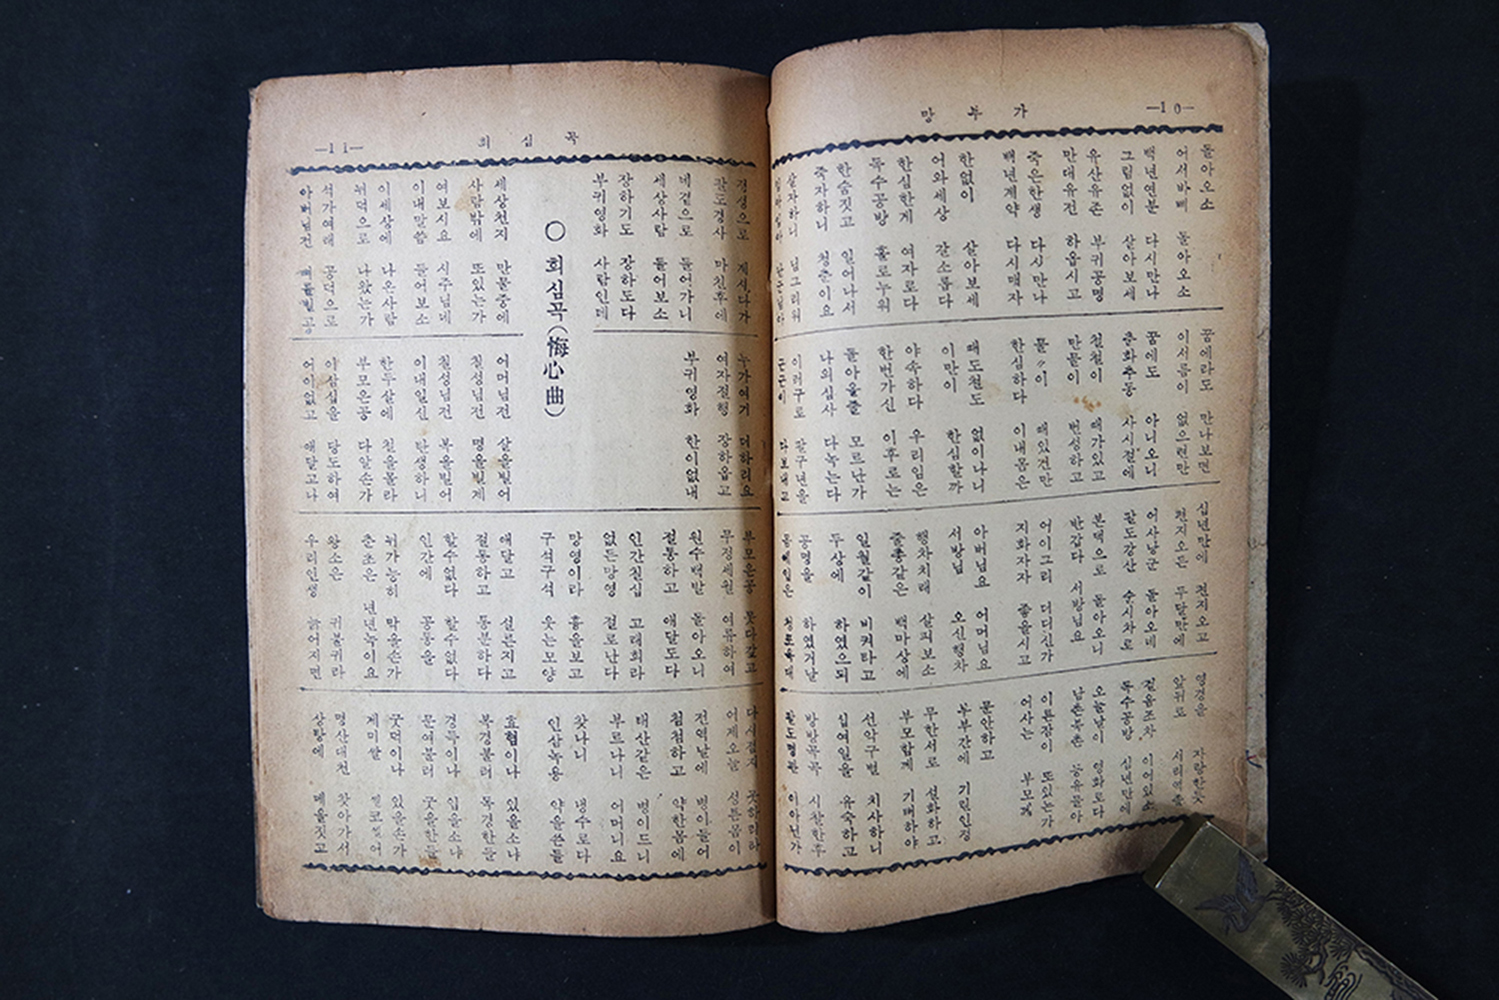 —10—
망부가
돌아오소 돌아오소
어서바삐
백년연분 다시만나
그림없이 살아보세
유산유존 부귀공명
만대유전 하옵시고
죽은한생 다시만나
백년계약 다시매자
한없이 살아보세
어와세상 갈소롭다
한심한게 여자로다
독수공방 홀로누워
한숨짓고 일어나서
죽자하니 청춘이요
살자하니 님그리워
꿈에라도 만나보면
이서름이 없으련만
꿈에도 아니오니
춘화추동 사시절에
철철이 때가있고
만물이 번성하고
물々이 때있건만
한심하다 이내몸은
때도철도 없이나니
이만이 한심할까
야속하다 우리임은
한번가신 이후로는
돌아올줄 모르난가
나의심사 다녹는다
이러구로 팔구년을
근근이 다보내고
십년만에 전지오고
전지오든 두달만에
어사낭군 돌아오네
팔도강산 순시차로
본댁으로 돌아오니
반갑다 서방님요
어이그리 더디신가
지화자자 좋을시고
아버님요 어머님요
서방님 오신행차
행차치레 살피보소
줄룡같은 백마상에
일월같이 비켜타고
두상에 하였으되
공명을 하였거날
몸에입은 청포옥대
영경을 자랑한듯
앞뒤로
걸음조차 이어있소
독수공방 십년만에
오늘날이 영화로다
남촌북촌 등유들아
이른잠이 또있는가
어사는 부모께
문안하고
부부간에 기린인정
무한서로 설화하고
부모함께 기뻐하야
선악구별 치사하니
십여일을 유숙하고
방방곡곡 시찰한후
팔도명관 이아닌가
—11—
회심곡
경생으로 계시다가
팔도경사 마친후에
네곁으로 들어가니
세상사람 들어보소
장하기도 장하도다
부귀영화 사람인데
누가여기 더하리요
여자절행 장하옵고
부귀영화 한이없내
○ 회심곡(悔心曲)
세상천지 만물중에
사람밖에 또있는가
여보시요 시주님네
이내말씀 들어보소
이세상에 나온사람
뉘덕으로 나왔는가
석가여래 공덕으로
아버님전 뼈를빌고
어머님전 살을빌어
칠성님전 명을빌게
칠성님전 복을빌어
이내일신 탄생하니
한두살에 철을몰라
부모은공 다알손가
이삼십을 당도하여
어이없고 애달고나
부모은공 못다갚고
무정세월 여류하여
원수백발 돌아오니
절통하고 애달도다
인간칠십 고래희라
없든망영 절로난다
망영이라 흉을보고
구석구석 웃는모양
애달고 설른지고
절통하고 통분하다
할수없다 할수없다
인간에 공통을
뉘가능히 막을손가
춘초은 년년녹이요
왕소은 귀불귀라
우리인생 늙어지면
다시젊지 못하리라
어제오늘 성튼몸이
전역날에 병이들어
첨첨하고 약한몸에
태산같은 병이드니
부르나니 어머니요
찾나니 냉수로다
인삼녹용 약을쓴들
효험이나 있을소냐
복경불러 독경한들
경득이나 입을소냐
문여불러 굿을한들
굿덕이나 있을손가
제미쌀
명산대천 찾아가서
상탕에 메를짓고